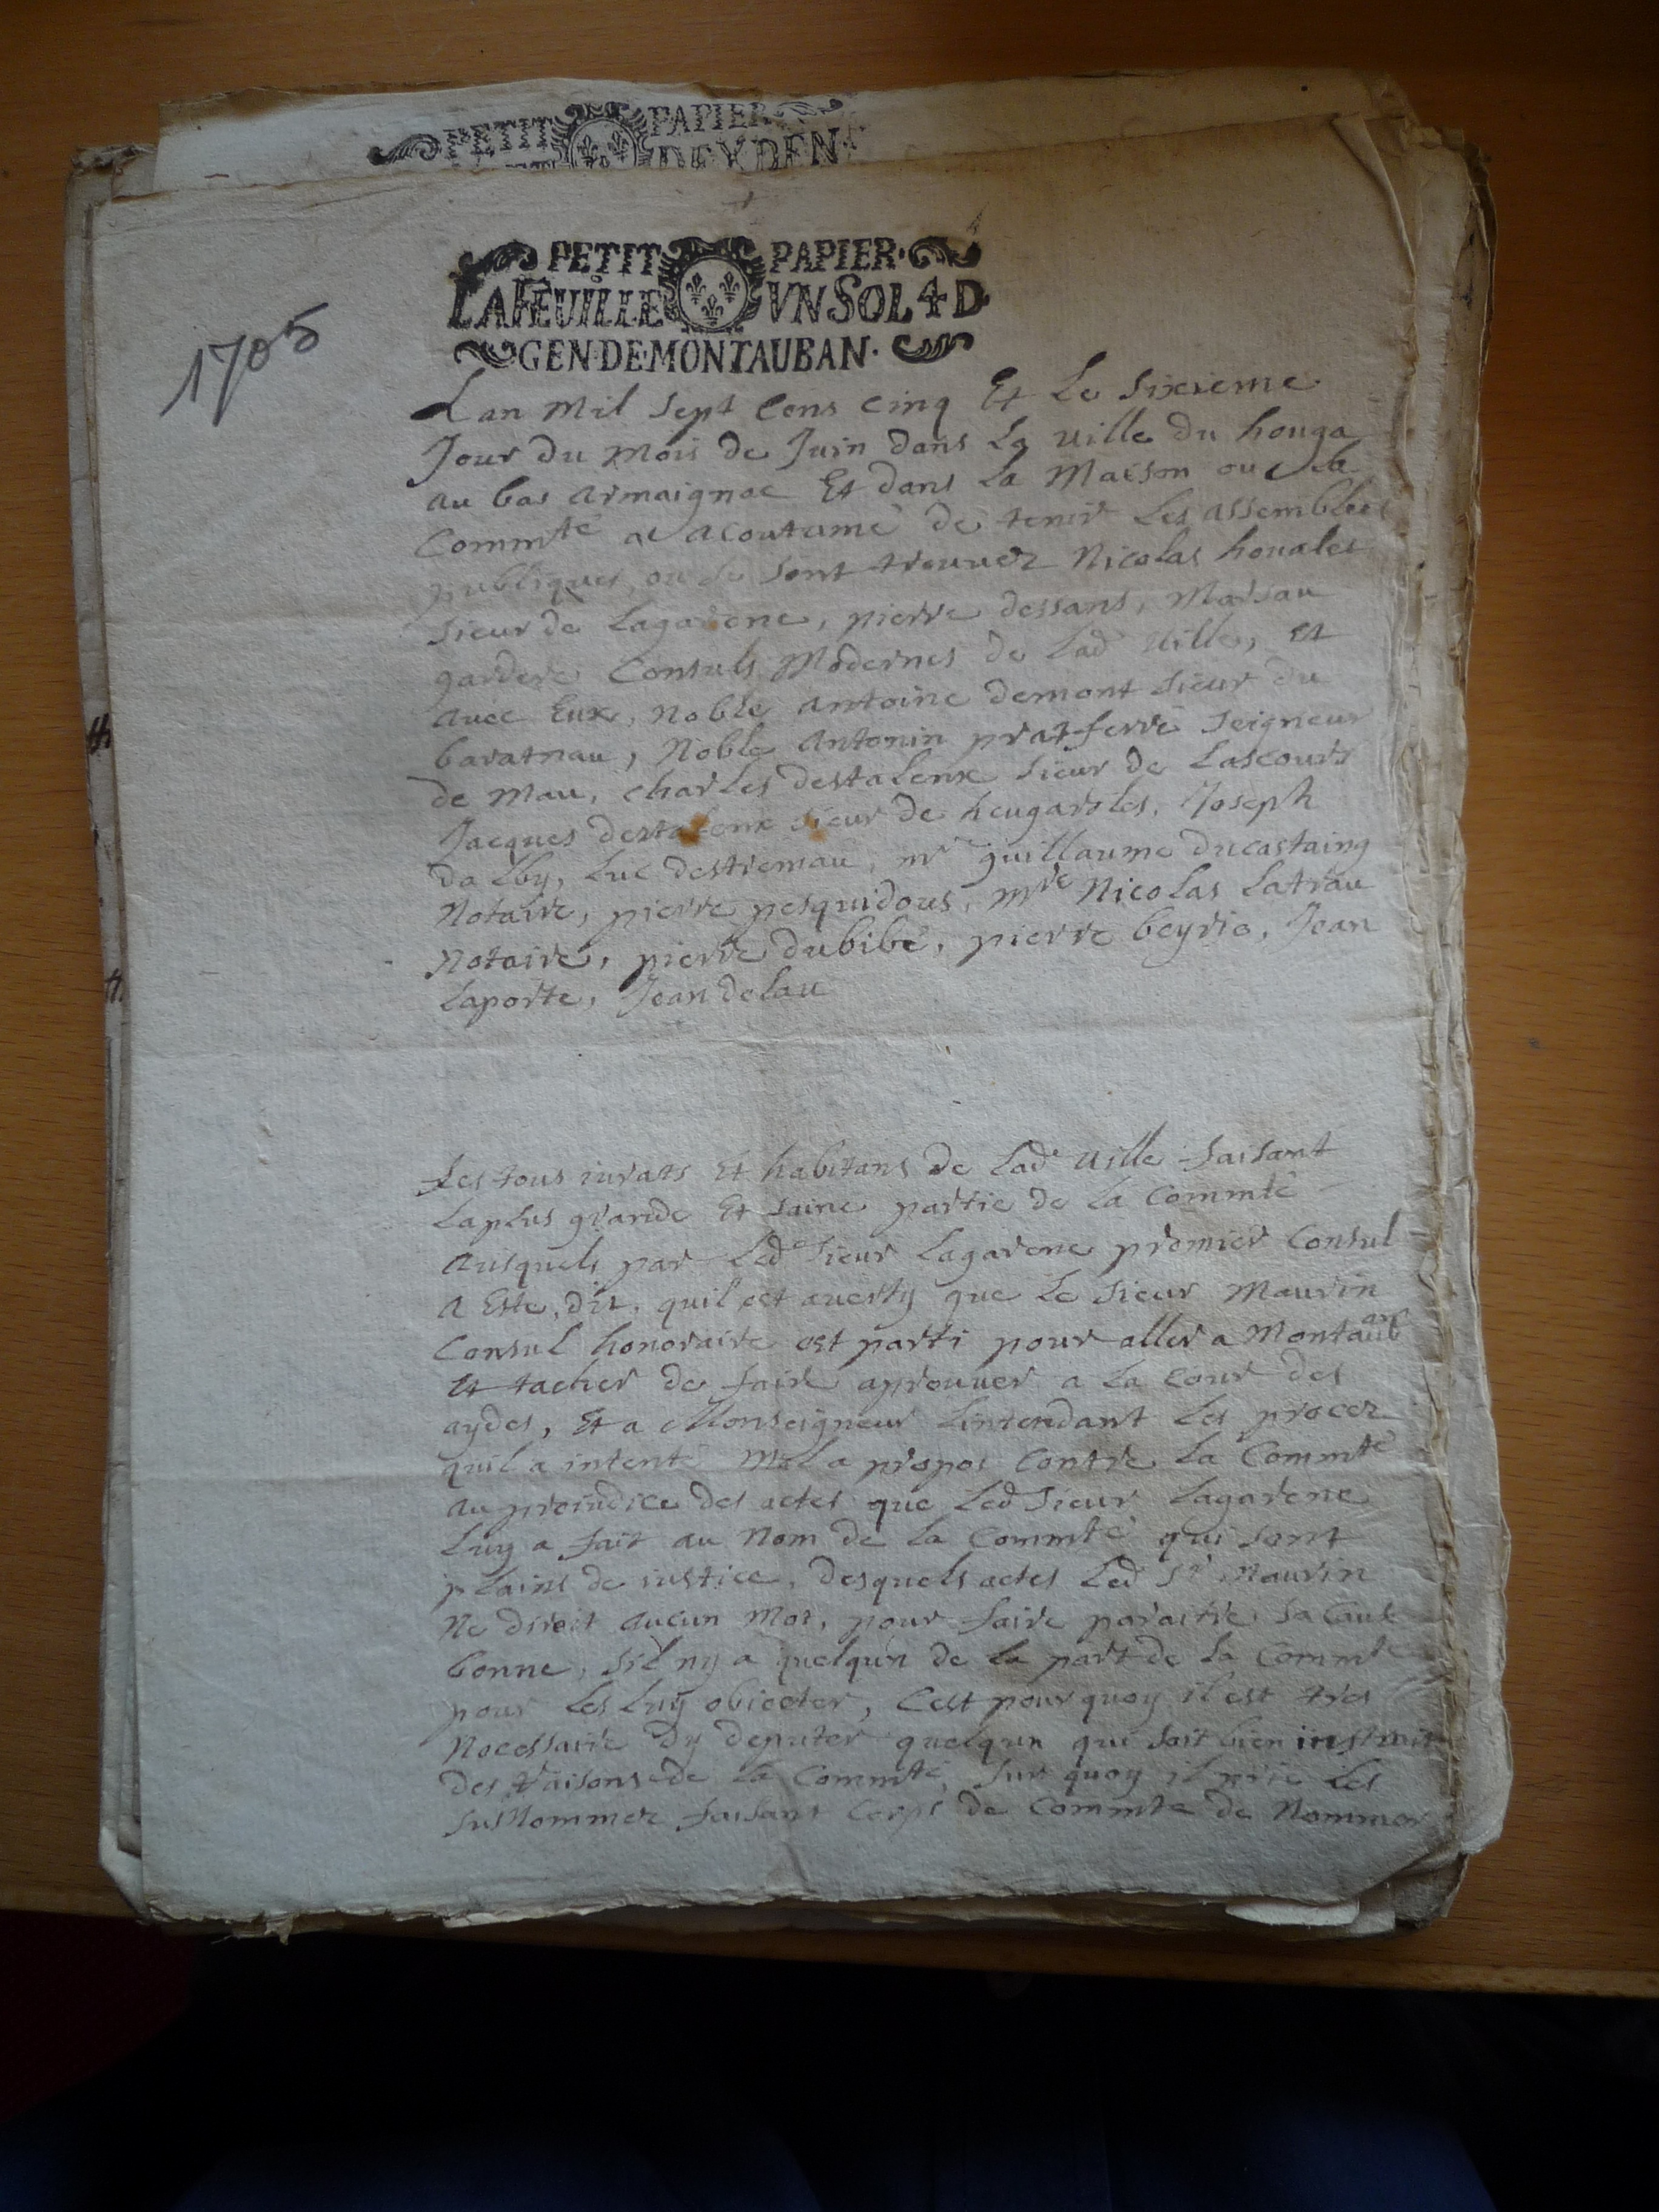 PETIT PAPIER
DEYDEN
PETIT PAPIER
LA FEUILLE VN SOL 4 D
GEN·DE·MONTAUBAN·
1705
Lan mil sept cens cinq Et Le sixieme
Jour du mois de Juin dans La ville du houga
au bas armaignac Et dans La Maison ou La
Commté a acoutumé de tenir Les assemblees
publiques, ou se sont trouuez Nicolas houales
sieur de Lagarene, pierre dessans, Marsau
gardere Consuls Modernes de Lad ville, Et
auec Eux, Noble antoine demont sieur du
baratnau, Noble Antonin pratferré seigneur
de Mau, charles destalenx sieur de Lascours
Jacques destalenx sieur de heugaroles, Joseph
dalby, Luc destremau, mr guillaume ducastaing
Notaire, pierre pesquidous, mre Nicolas Latrau
Notaire, pierre dubibé, pierre beyrie, Jean
Laporte, Jean delau
Les tous iurats Et habitans de Lade ville faisant
Laplus grande Et saine partie de La Commté
ausquels par Lede sieur Lagarene premier Consul
a Este, dit, quil est auerty que Le sieur Maurin
Consul honoraire est parti pour aller a Montauban
Et tacher de faire aprouuer a La Cour des
aydes, Et a Monseigneur Lintendant Les procez
quil a intenté Mal a propos Contre La Commté
au preiudice des actes que Led sieur Lagarene
Luy a fait au Nom de La Commté qui sont
plains de iustice, desquels actes Led Sr Maurin
Ne diroit aucun Mot, pour faire paraitre sa Cause
bonne, sil ny a quelqun de La part de La Commté
pour Les Luy obiecter, Cest pourquoy il est tres
Necessaire dy deputer quelqun qui soit bien instruit
des raisons de La Commté, sur quoy il prie Les
susNommez faisant Corps de Commté de Nommer